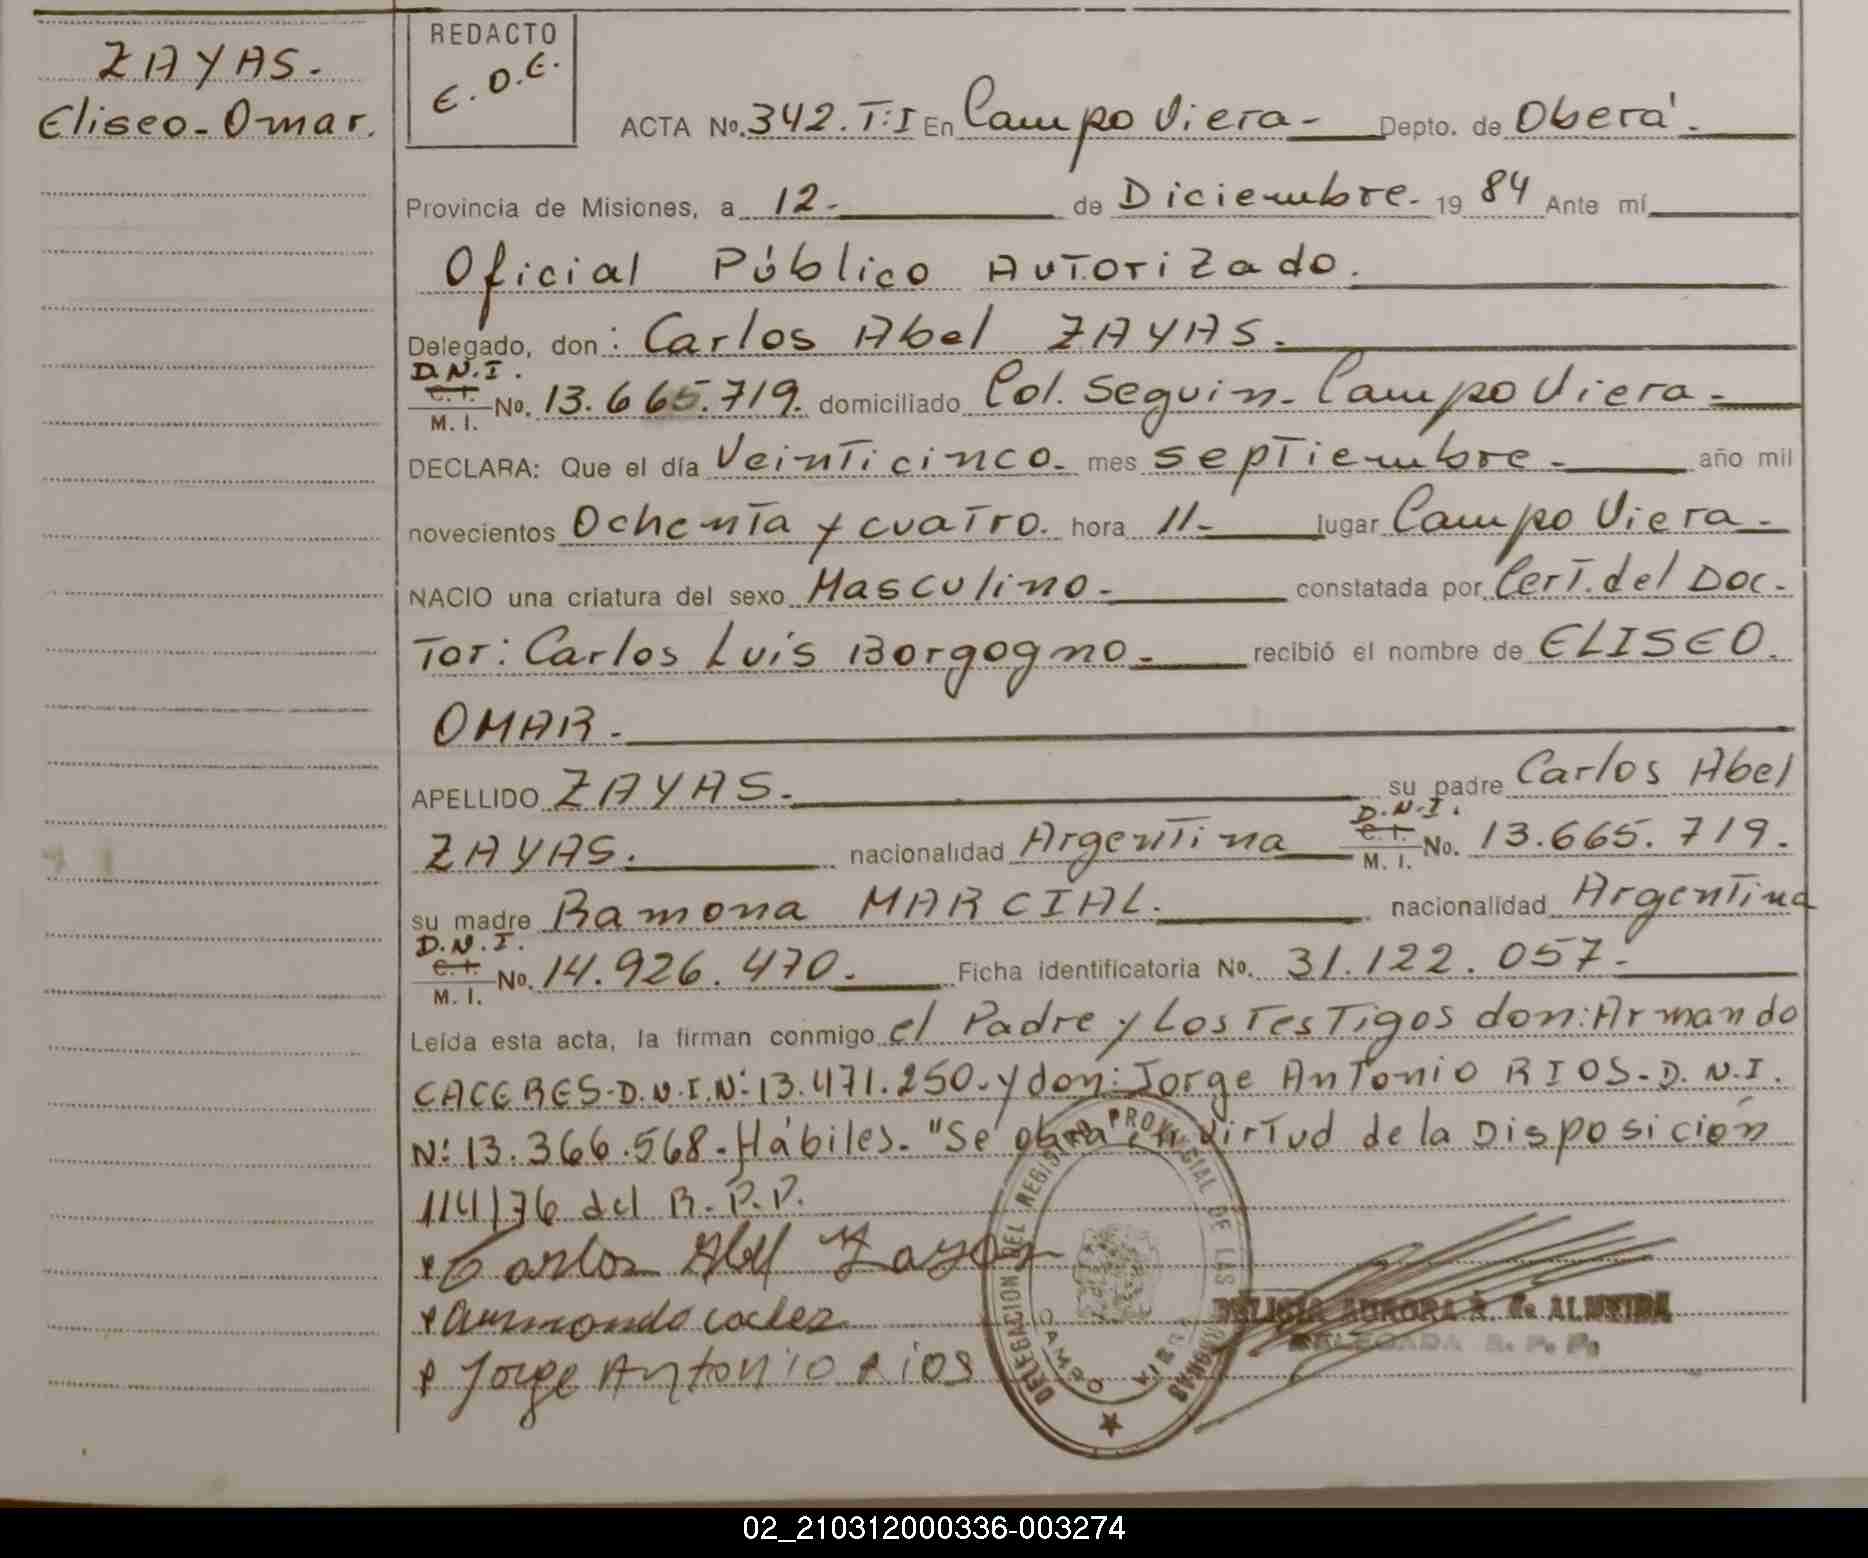 ZAYAS.
Eliseo-Omar.
REDACTO
E.D.E.
ACTA No. 342. T:I En Campo Viera- Depto. de Oberá.
Provincia de Misiones, a 12.- de Diciembre.- 1984 Ante mí
Oficial Público Autorizado.
Delegado, don: Carlos Abel ZAYAS.-
D.N.I.
C.I.
M. I.
No. 13.665.719. domiciliado Col. Seguin- Campo Viera-
DECLARA: Que el día Veinticinco- mes septiembre.- año mil
novecientos Ochenta y cuatro. hora 11- lugar Campo Viera-
NACIO una criatura del sexo Masculino.- constatada por Cert. del Doc-
tor: Carlos Luis Borgogno- recibió el nombre de ELISEO
OMAR.-
APELLIDO ZAYAS.- su padre Carlos Abel
D.N.I.
ZAYAS. nacionalidad Argentina C.I. No. 13.665.719.
M. I.
su madre Ramona MARCIAL.- nacionalidad Argentina
D.N.I.
C.I. No. 14.926.470.- Ficha identificatoria No. 31.122.057.-
M. I.
Leída esta acta, la firman conmigo el Padre y Los Testigos don: Armando
CACERES-D.N.I.N: 13.471.250.-y don: Jorge Antonio RIOS-D.N.I.
N: 13.366.568.-Hábiles.- "Se obra en virtud de la Disposición
114/76 del R.P.P.
Carlos Abel Zayas
Jorge Antonio Rios
DELEGACION DEL REGISTRO PROVINCIAL DE LAS PERSONAS
CAMPO VIERA
AURORA R. de ALMEIDA
DELEGADA R. P. P.
02_210312000336-003274